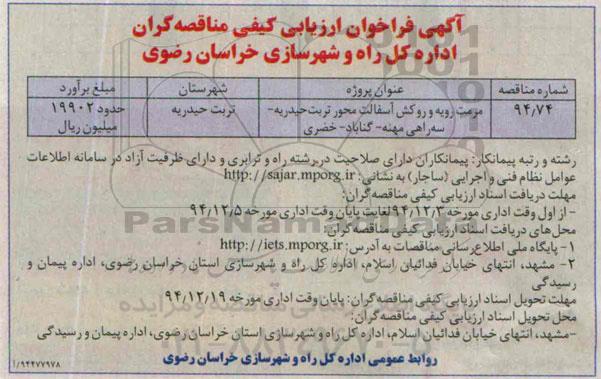 آگهی فراخوان ارزیابی کیفی مناقصه‌گران
اداره کل راه و شهرسازی خراسان رضوی
شماره مناقصه عنوان پروژه شهرستان مبلغ برآورد
۹۴/۷۴ مرمت رویه و روکش آسفالت محور تربت‌حیدریه- تربت حیدریه حدود ۱۹۹۰۲
سه‌راهی مهنه- گناباد- خضری میلیون ریال
رشته و رتبه پیمانکار: پیمانکاران دارای صلاحیت در رشته راه و ترابری و دارای ظرفیت آزاد در سامانه اطلاعات
عوامل نظام فنی و اجرایی (ساجار) به نشانی: http://sajar.mporg.ir
مهلت دریافت اسناد ارزیابی کیفی مناقصه‌گران:
- از اول وقت اداری مورخه ۹۴/۱۲/۳ لغایت پایان وقت اداری مورخه ۹۴/۱۲/۵
محل‌های دریافت اسناد ارزیابی کیفی مناقصه‌گران:
۱- پایگاه ملی اطلاع‌رسانی مناقصات به آدرس: http://iets.mporg.ir
۲- مشهد، انتهای خیابان فدائیان اسلام، اداره کل راه و شهرسازی استان خراسان رضوی، اداره پیمان و
رسیدگی
مهلت تحویل اسناد ارزیابی کیفی مناقصه‌گران: پایان وقت اداری مورخه ۹۴/۱۲/۱۹
محل تحویل اسناد ارزیابی کیفی مناقصه‌گران:
-مشهد، انتهای خیابان فدائیان اسلام، اداره کل راه و شهرسازی استان خراسان رضوی، اداره پیمان و رسیدگی
روابط عمومی اداره کل راه و شهرسازی خراسان رضوی
۹۴۴۷۷۹۷۸/آ